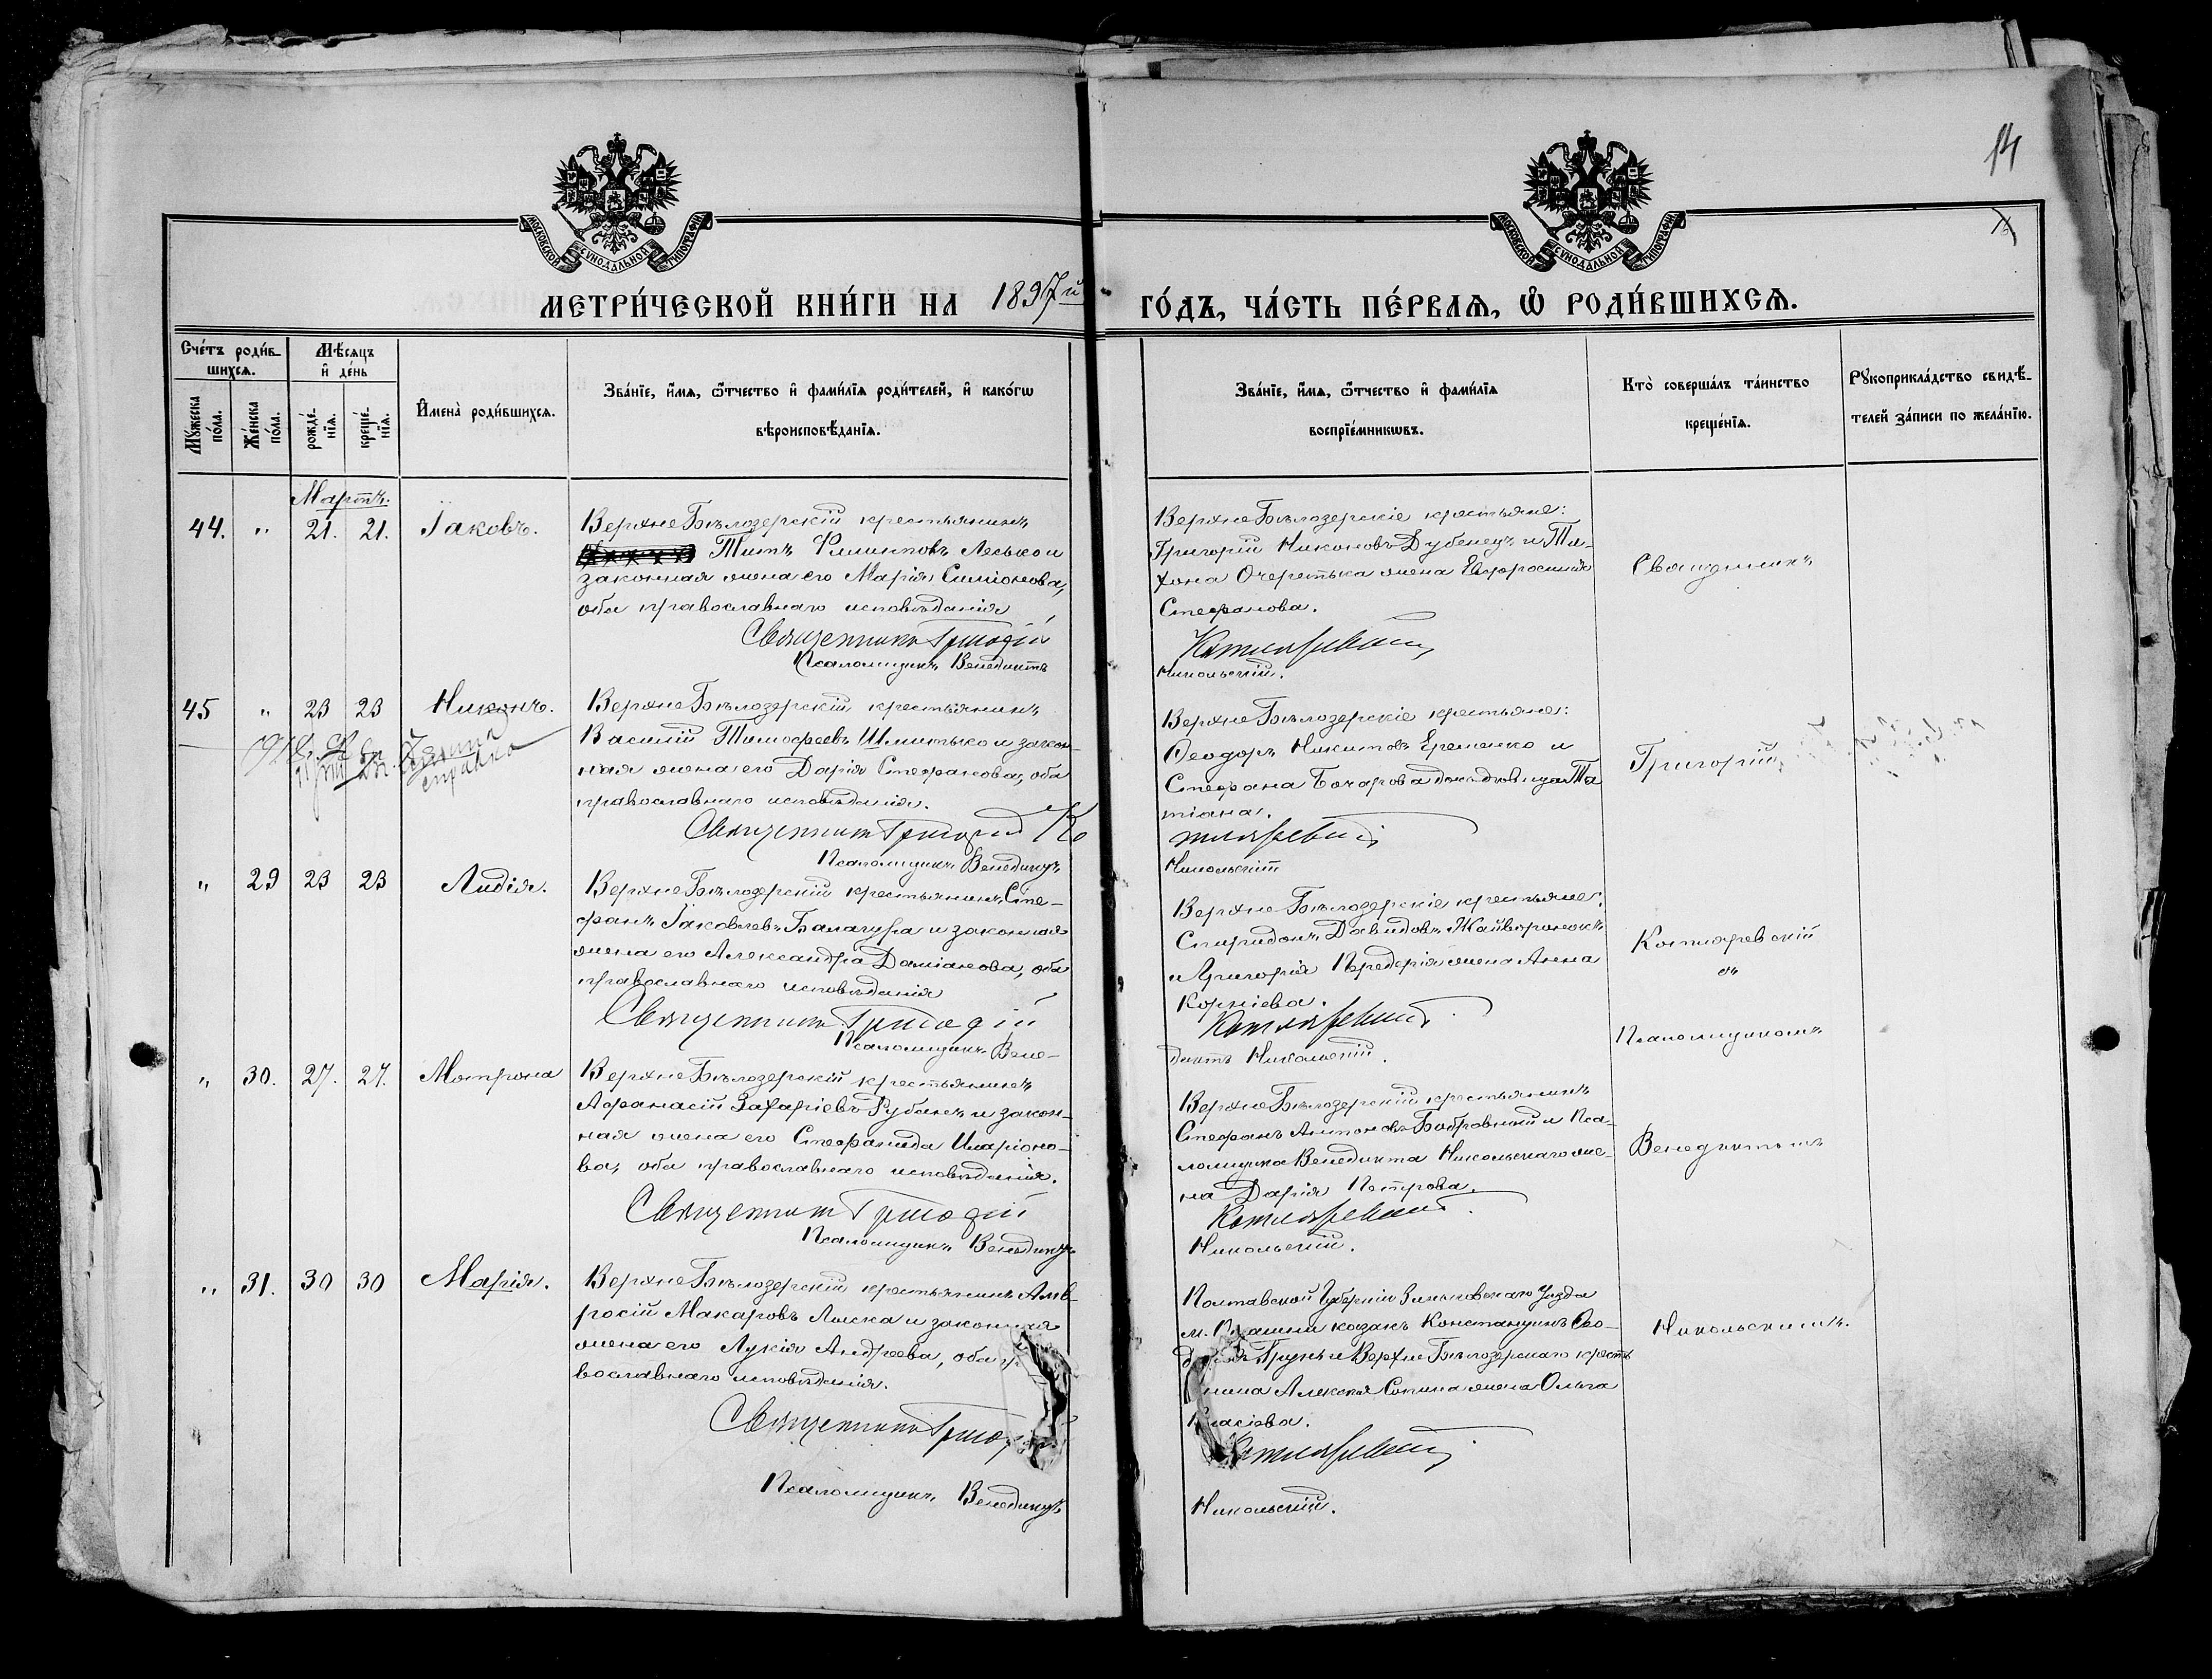 14
МОСКОВСКОЙ СѴНОДАЛЬНОЙ ТИПОГРАФІИ
МОСКОВСКОЙ СѴНОДАЛЬНОЙ ТИПОГРАФІИ
МЕТРИ́ЧЕСКОЙ КНИ́ГИ НА 1897й ГО́ДЪ, ЧА́СТЬ ПЕ́РВАѦ, Ѽ РОДИ́ВШИХСѦ.
Сче́тъ роди́в-
шихсѧ.
Мꙋ́жеска по́ла.
Же́нска по́ла.
Мѣ́сѧцъ
и҆ де́нь
рожде́-
нїѧ.
креще́-
нїѧ.
И҆мена̀ роди́вшихсѧ.
Зва́нїе, и҆́мѧ, ѻ҆́тчество и҆ фами́лїѧ роди́телей, и҆ како́гѡ
вѣроисповѣ́данїѧ.
Зва́нїе, и҆́мѧ, ѻ҆́тчество и҆ фами́лїѧ
воспрїе́мникѡвъ.
Кто̀ соверша́лъ та́инство
креще́нїѧ.
Рꙋкоприкла́дство свидѣ́-
телей за́писи по жела́нїю.
Мартъ.
44. " 21. 21. Іаковъ.
ВерхнеБѣлозерскій крестьянинъ
Титъ Филиповъ Лесько и
законная жена его Марія Симіонова,
оба православнаго исповѣданія
Священникъ Григорій
Псаломщикъ Венедиктъ
ВерхнеБѣлозерскіе крестьяне:
Григорій Никоновъ Дубенецъ и Ти-
хона Очеретька жена Евфросинія
Стефанова.
Котляревскій
Никольскій.
Священникъ
45 " 23 23 Никонъ.
справка
ВерхнеБѣлозерскій крестьянинъ
Василій Тимофеевъ Шлитько и закон-
ная жена его Дарія Стефанова, оба
православнаго исповѣданія.
Священникъ Григорій Ко
Псаломщикъ Венедиктъ
ВерхнеБѣлозерскіе крестьяне:
Феодоръ Никитовъ Еременко и
Стефана Бочарова дочь дѣвица Та
тіана.
тляревскій
Никольскій
Григорій
" 29 23 23 Лидія.
ВерхнеБѣлозерскій крестьянинъ Сте-
фанъ Іаковлевъ Балагура и законная
жена его Александра Даміанова, оба
православнаго исповѣданія
Священникъ Григорій
Псаломщикъ Вене-
ВерхнеБѣлозерскіе крестьяне:
Спиридонъ Давидовъ Жайворонокъ
и Григорія Передерія жена Анна
Корніева.
Котляревскій
диктъ Никольскій.
Котляревскій
съ
Псаломщикомъ
" 30. 27. 27. Матрона
ВерхнеБѣлозерскій крестьянинъ
Афанасій Захаріевъ Рубанъ и закон-
ная жена его Стефанида Иларіоно-
ва, оба православнаго исповѣданія.
Священникъ Григорій
Псаломщикъ Венедиктъ
ВерхнеБѣлозерскій крестьянинъ
Стефанъ Антоновъ Бобровный и Пса-
ломщика Венедикта Никольскаго же-
на Дарія Петрова.
Котляревскій
Никольскій.
Венедиктомъ
" 31. 30 30 Марія.
ВерхнеБѣлозерскій крестьянинъ Амв-
росій Макаровъ Лыска и законная
жена его Лукія Андреева, оба
вославнаго исповѣданія.
Священникъ
Псаломщикъ Венедиктъ
Полтавской Губерніи Зиньковскаго Уѣзда
казакъ Константинъ
и ВерхнеБѣлозерскаго
Алексія жена Ольга
Власіева.
Котляревскій
Никольскій.
Никольскимъ.